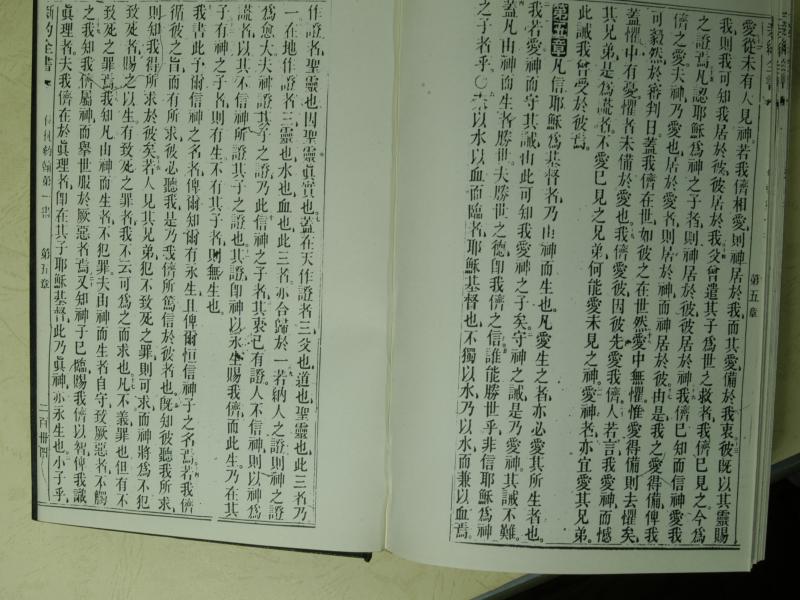 愛從未有人見神若我儕相愛則神居於我而其愛備於我衷彼既以其靈賜
我則我可知我居於彼彼居於我父曾遣其子為世之救者我儕已見之今為
之證焉凡認耶穌為神之子者則神居於彼彼居於神我儕已知而信神愛我
儕之愛夫神乃愛也居於愛者則居於神而神居於彼由是我之愛得備俾我
可毅然於審判日蓋我儕在世如彼之在世然愛中無懼惟愛得備則去懼矣
蓋懼中有憂懼者未備於愛也我儕愛彼因彼先愛我儕人若言我愛神而憾
其兄弟是為謊者不愛已見之兄弟何能愛未見之神愛神者亦宜愛其兄弟
此誡我曾受於彼焉
第五章凡信耶穌為基督者乃由神而生也凡愛生之者亦必愛其所生者也
我若愛神而守其誡由此可知我愛神之子矣守神之誡是乃愛神其誡不難
蓋凡由神而生者勝世夫勝世之德即我儕之信誰能勝世乎非信耶穌為神
之子者乎〇夫以水以血而臨者耶穌基督也不獨以水乃以水而兼以血焉
第五章
作證者聖靈也因聖靈真實也蓋在天作證者三父也道也聖靈也此三者乃
一在地作證者三靈也水也血也此三者亦合歸於一若納人之證則神之證
為愈大夫神證其子之證乃此信神之子者其衷已有證人不信神則以神為
謊者以其不信神所證其子之證也其證即神以永生賜我儕而此生乃在其
子有神之子者則有生不有其子者則無生也
我書此予爾信神之名者俾爾知爾有永生且俾爾恒信神子之名焉若我儕
循彼之旨而有所求彼必聽我是乃我儕所篤信於彼者也既知彼聽我所求
則知我得所求於彼矣若人見其兄弟犯不致死之罪則可求而神將為不犯
致死者賜之以生有致死之罪者我不云可為之而求也凡不義罪也但有不
致死之罪焉我知凡由神而生者不犯罪夫由神而生者自守致厥惡者不觸
之我知我儕屬神而舉世服於厥惡者焉又知神子已臨賜我儕以智俾我識
真理者夫我儕在於真理者即在其子耶穌基督此乃真神亦永生也小子乎
新約全書 使徒約翰第一書 第五章